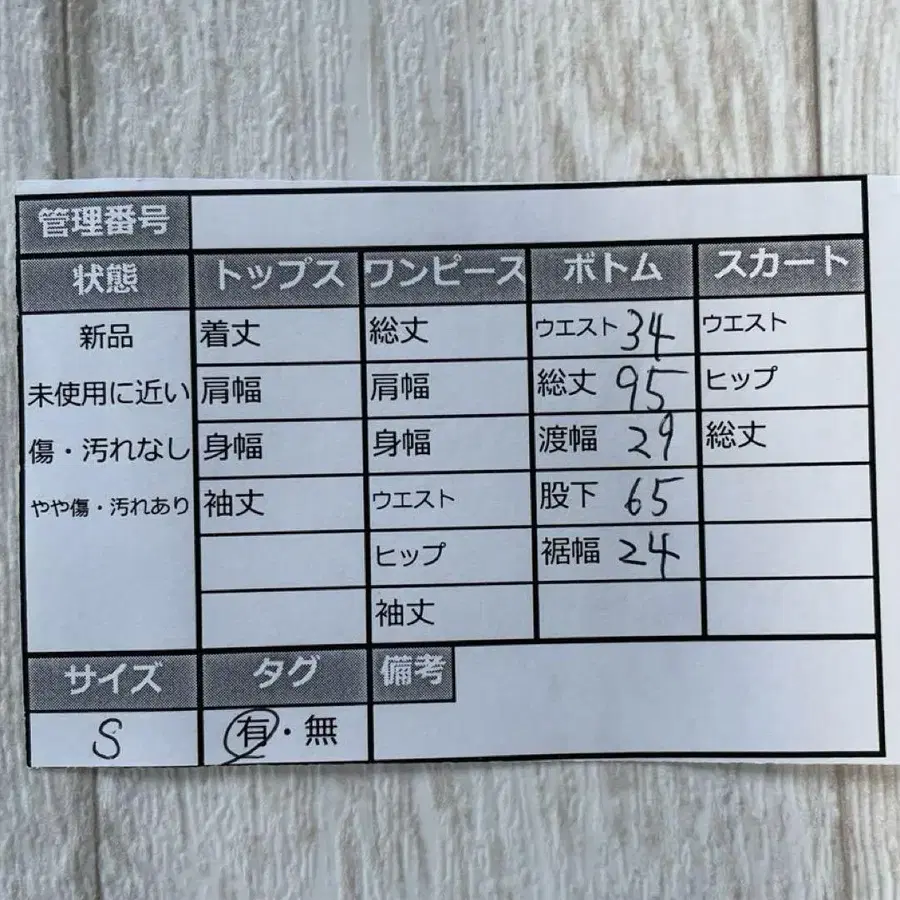 管理番号
状態 トップス ワンピース ボトム スカート
新品 着丈 総丈 ウエスト 34 ウエスト
未使用に近い 肩幅 肩幅 総丈 95 ヒップ
傷・汚れなし 身幅 身幅 渡幅 29 総丈
やや傷・汚れあり 袖丈 ウエスト 股下 65
ヒップ 裾幅 24
袖丈
サイズ タグ 備考
S 有・無